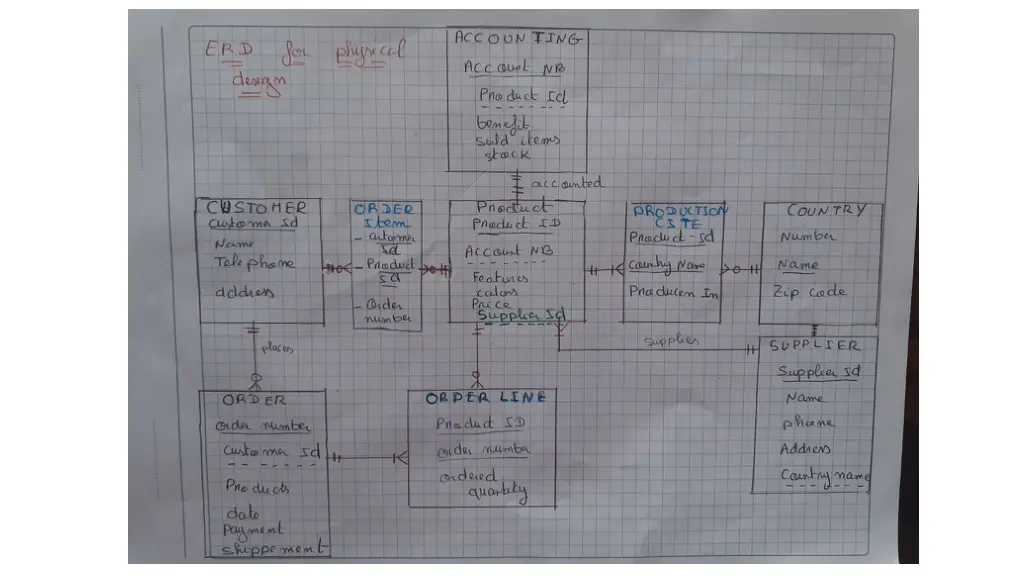 ERD for physical
design
ACCOUNTING
Account NB
Product Id
benefit
sald items
stock
accounted
CUSTOMER
Customer Id
Name
Telephone
address
ORDER
Item
- Cutomer
Id
- Product
Id
- Order
number
Product
Product ID
Account NB
Features
colors
Price
Supplier Id
PRODUCTION
CITE
Product-Id
Country Name
Producen In
COUNTRY
Number
Name
Zip code
places
supplies
SUPPLIER
Supplier Id
Name
phone
Address
Country name
ORDER
order number
Customer Id
Products
date
payment
shippement
ORDER LINE
Product ID
order number
ordered
quantity